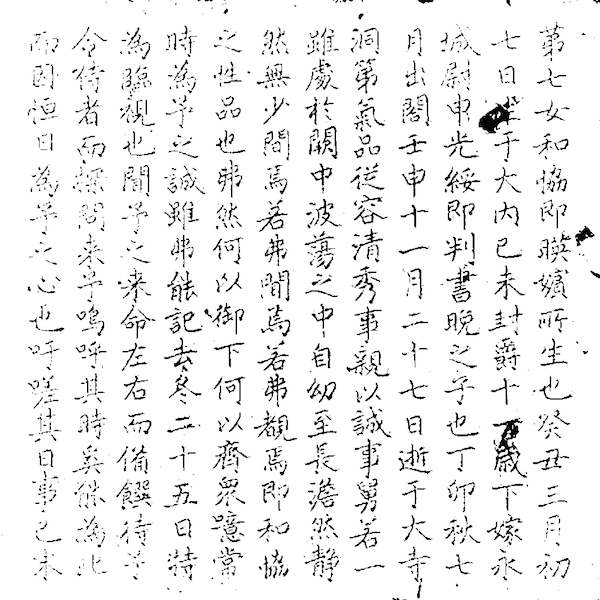 第七女和協即暎嬪所生也癸丑三月初
七日生于大內己未封爵十一歲下嫁永
城尉申光綏即判書晚之子也丁卯秋七
月出閤壬申十一月二十七日逝于大寺
洞第氣品從容清秀事親以誠事舅若一
雖處於闕中波蕩之中自幼至長澹然静
然無少間焉若弗聞焉若弗覩焉即和協
之性品也弗然何以御下何以齊衆噫當
時為予之誠雖弗能記去冬二十五日特
為臨視也聞予之來命左右而備饌待予
令侍者而探問来予嗚呼其時奚能為此
而因恒日為予之心也吁嗟其日事已未